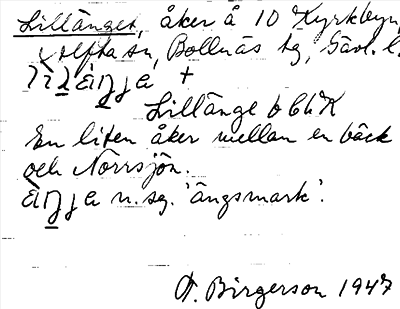 Lillänget, åker å 10 Kyrkbyn,
Alfta sn, Bollnäs tg, Gävl. l.
Lillänge obl. K
En liten åker mellan en bäck
och Norrsjön.
n. sg. 'ängsmark'.
F. Birgerson 1947